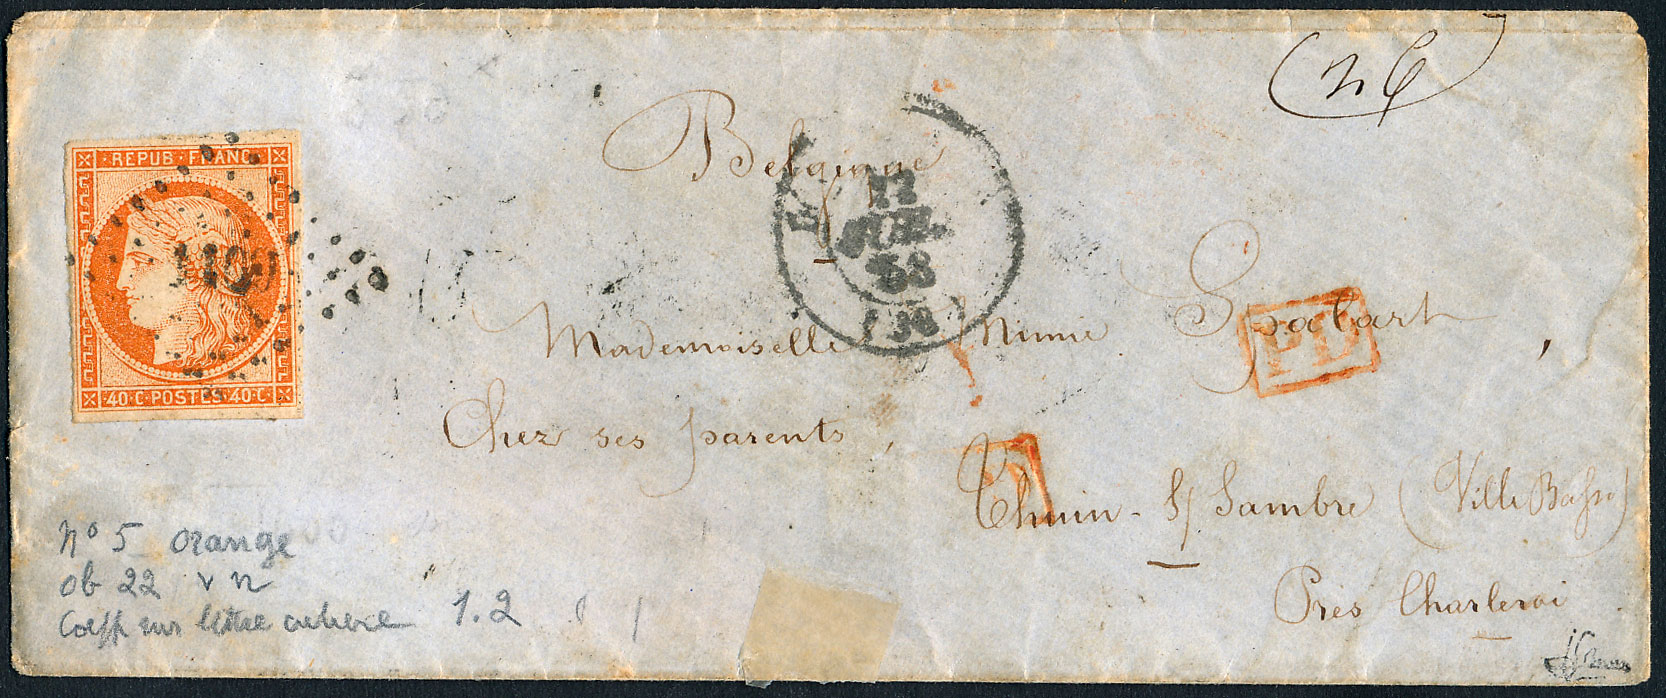 Belgique
REPUB·FRANC
1199
40·C·POSTES·40·C·
JUIL.
58
(36)
Mademoiselle Mimie Gobart
PD
Chez ses parents,
Thuin - S/ Sambre (Ville Basse)
Près Charleroi
n° 5 orange
ob 22 v n
Coeff sur lettre entière 1.2